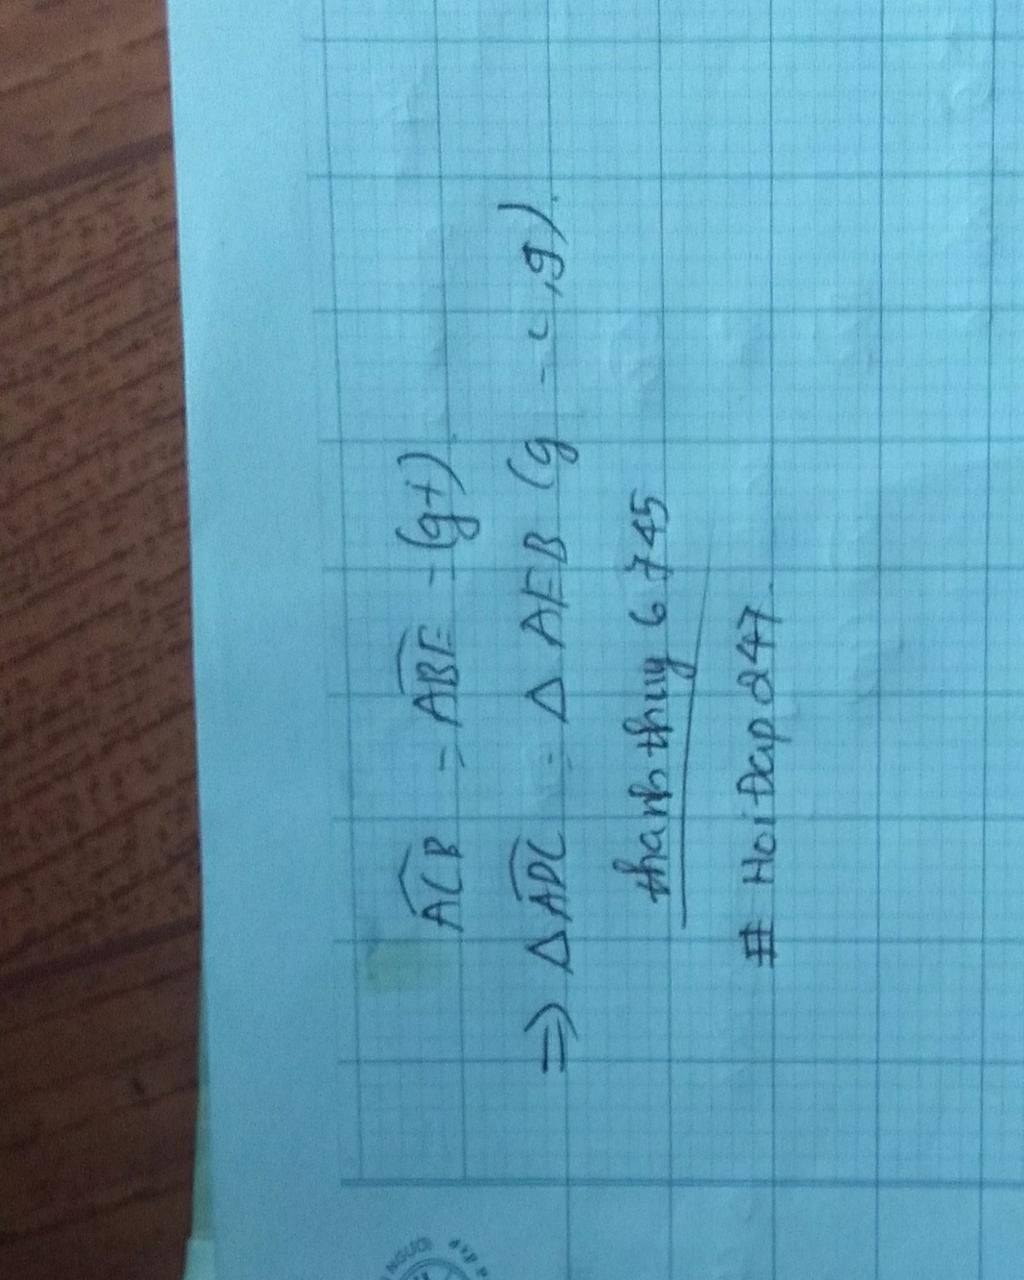 ACB = ABE = (gt)
=> Δ ADC = Δ AEB (g - c, g).
thanh thuy 6 745
# HoiDap 247.
NGƯỜI